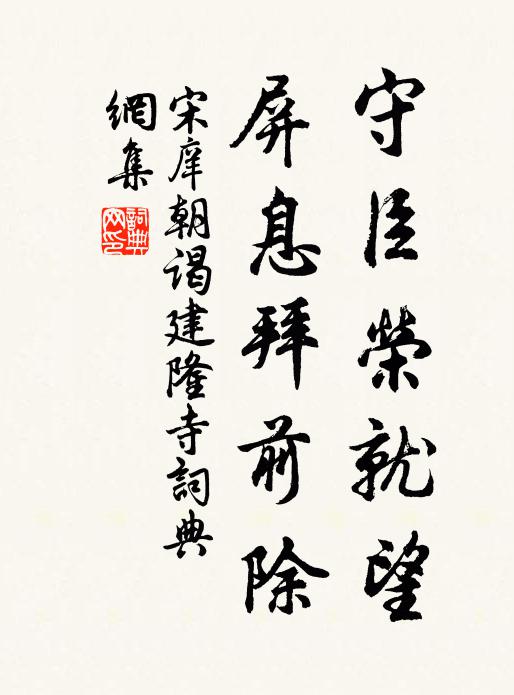 守臣榮就望
屏息拜前除
宋庠朝謁建隆寺詞典
網集
詞典
网印